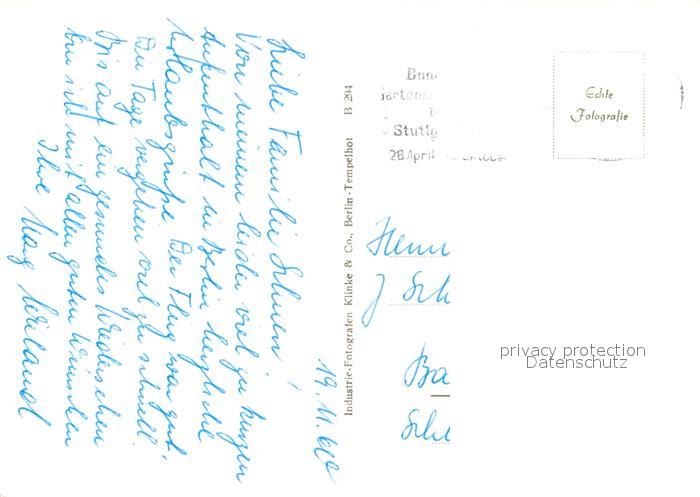 19.11.60
Liebe Familie
Von meinem leider viel zu kurzen
Aufenthalt in Berlin herzliche
Urlaubsgrüße. Der Flug war gut.
Die Tage vergehen viel zu schnell.
Bis auf ein gesundes Wiedersehen
bin ich mit allen guten Wünschen
Ihre
Industrie-Fotografen Klinke & Co., Berlin-Tempelhof B 294
Bun
artens
Stuttg
28 April
Echte
Fotografie
Herrn
J. Sch
Ba
Sch
privacy protection
Datenschutz